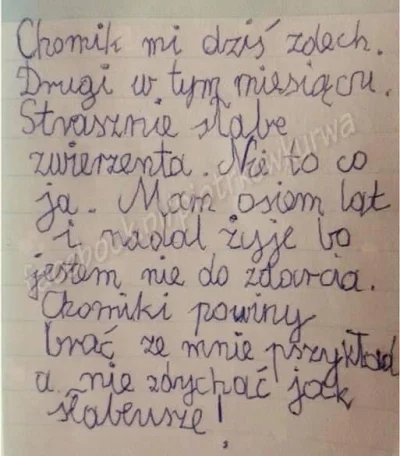 Chomik mi dziś zdech.
Drugi w tym miesiącu.
Strasznie słabe
zwierzenta. Nie to co
ja. Mam osiem lat
i nadal żyje bo
jestem nie do zdarcia.
Chomiki powiny
brać ze mnie pszykład
a nie zdychać jak
słabeusze!